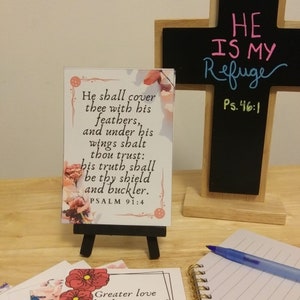 He shall cover
thee with his
feathers,
and under his
wings shalt
thou trust:
his truth shall
be thy shield
and buckler.
PSALM 91:4
HE
IS MY
Refuge
Ps. 46:1
Greater love